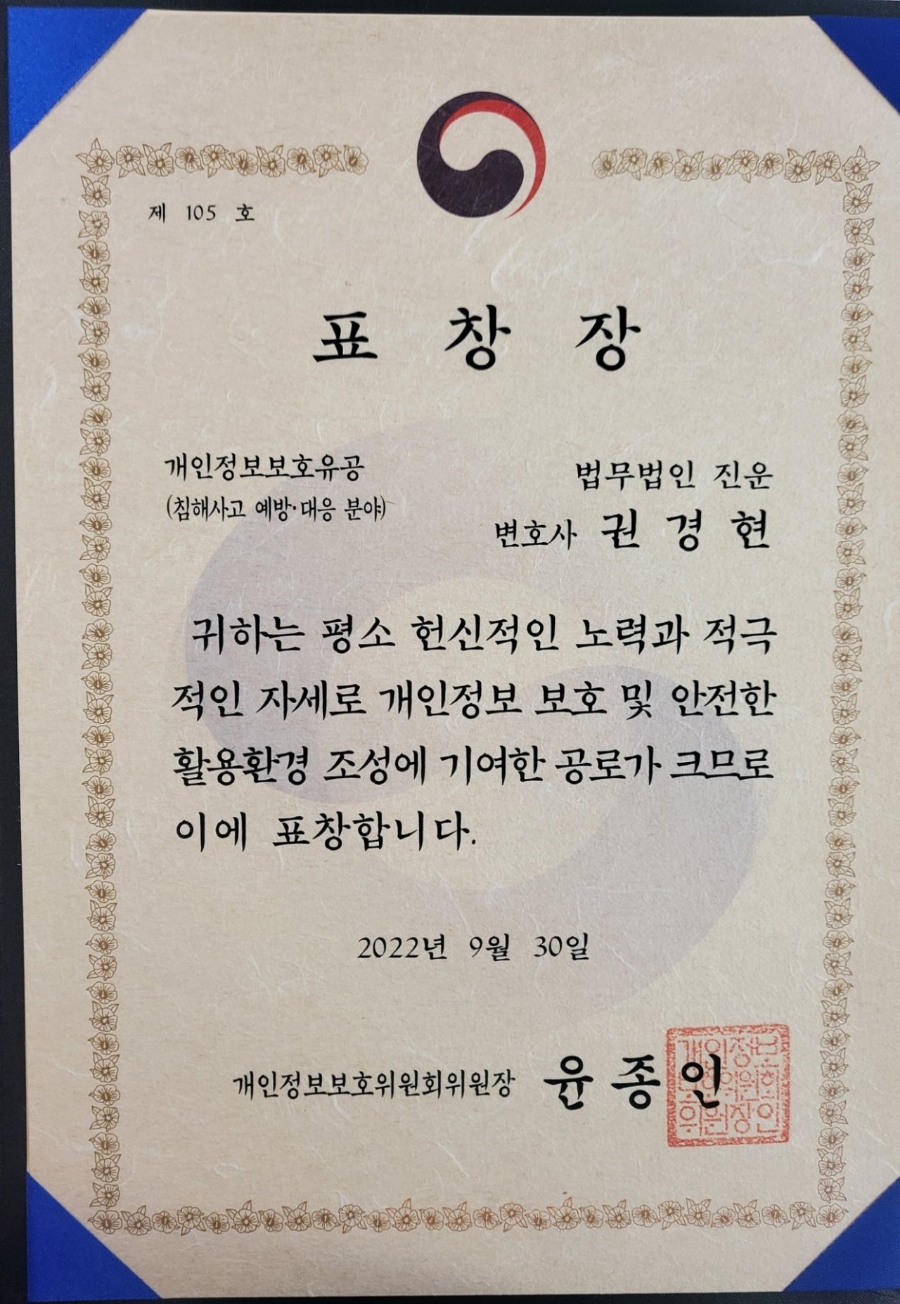 제 105 호
표 창 장
개인정보보호유공
(침해사고 예방·대응 분야)
법무법인 진운
변호사 권 경 현
귀하는 평소 헌신적인 노력과 적극
적인 자세로 개인정보 보호 및 안전한
활용환경 조성에 기여한 공로가 크므로
이에 표창합니다.
2022년 9월 30일
개인정보보호위원회위원장 윤 종 인
개인정보
보호위원회
위원장인